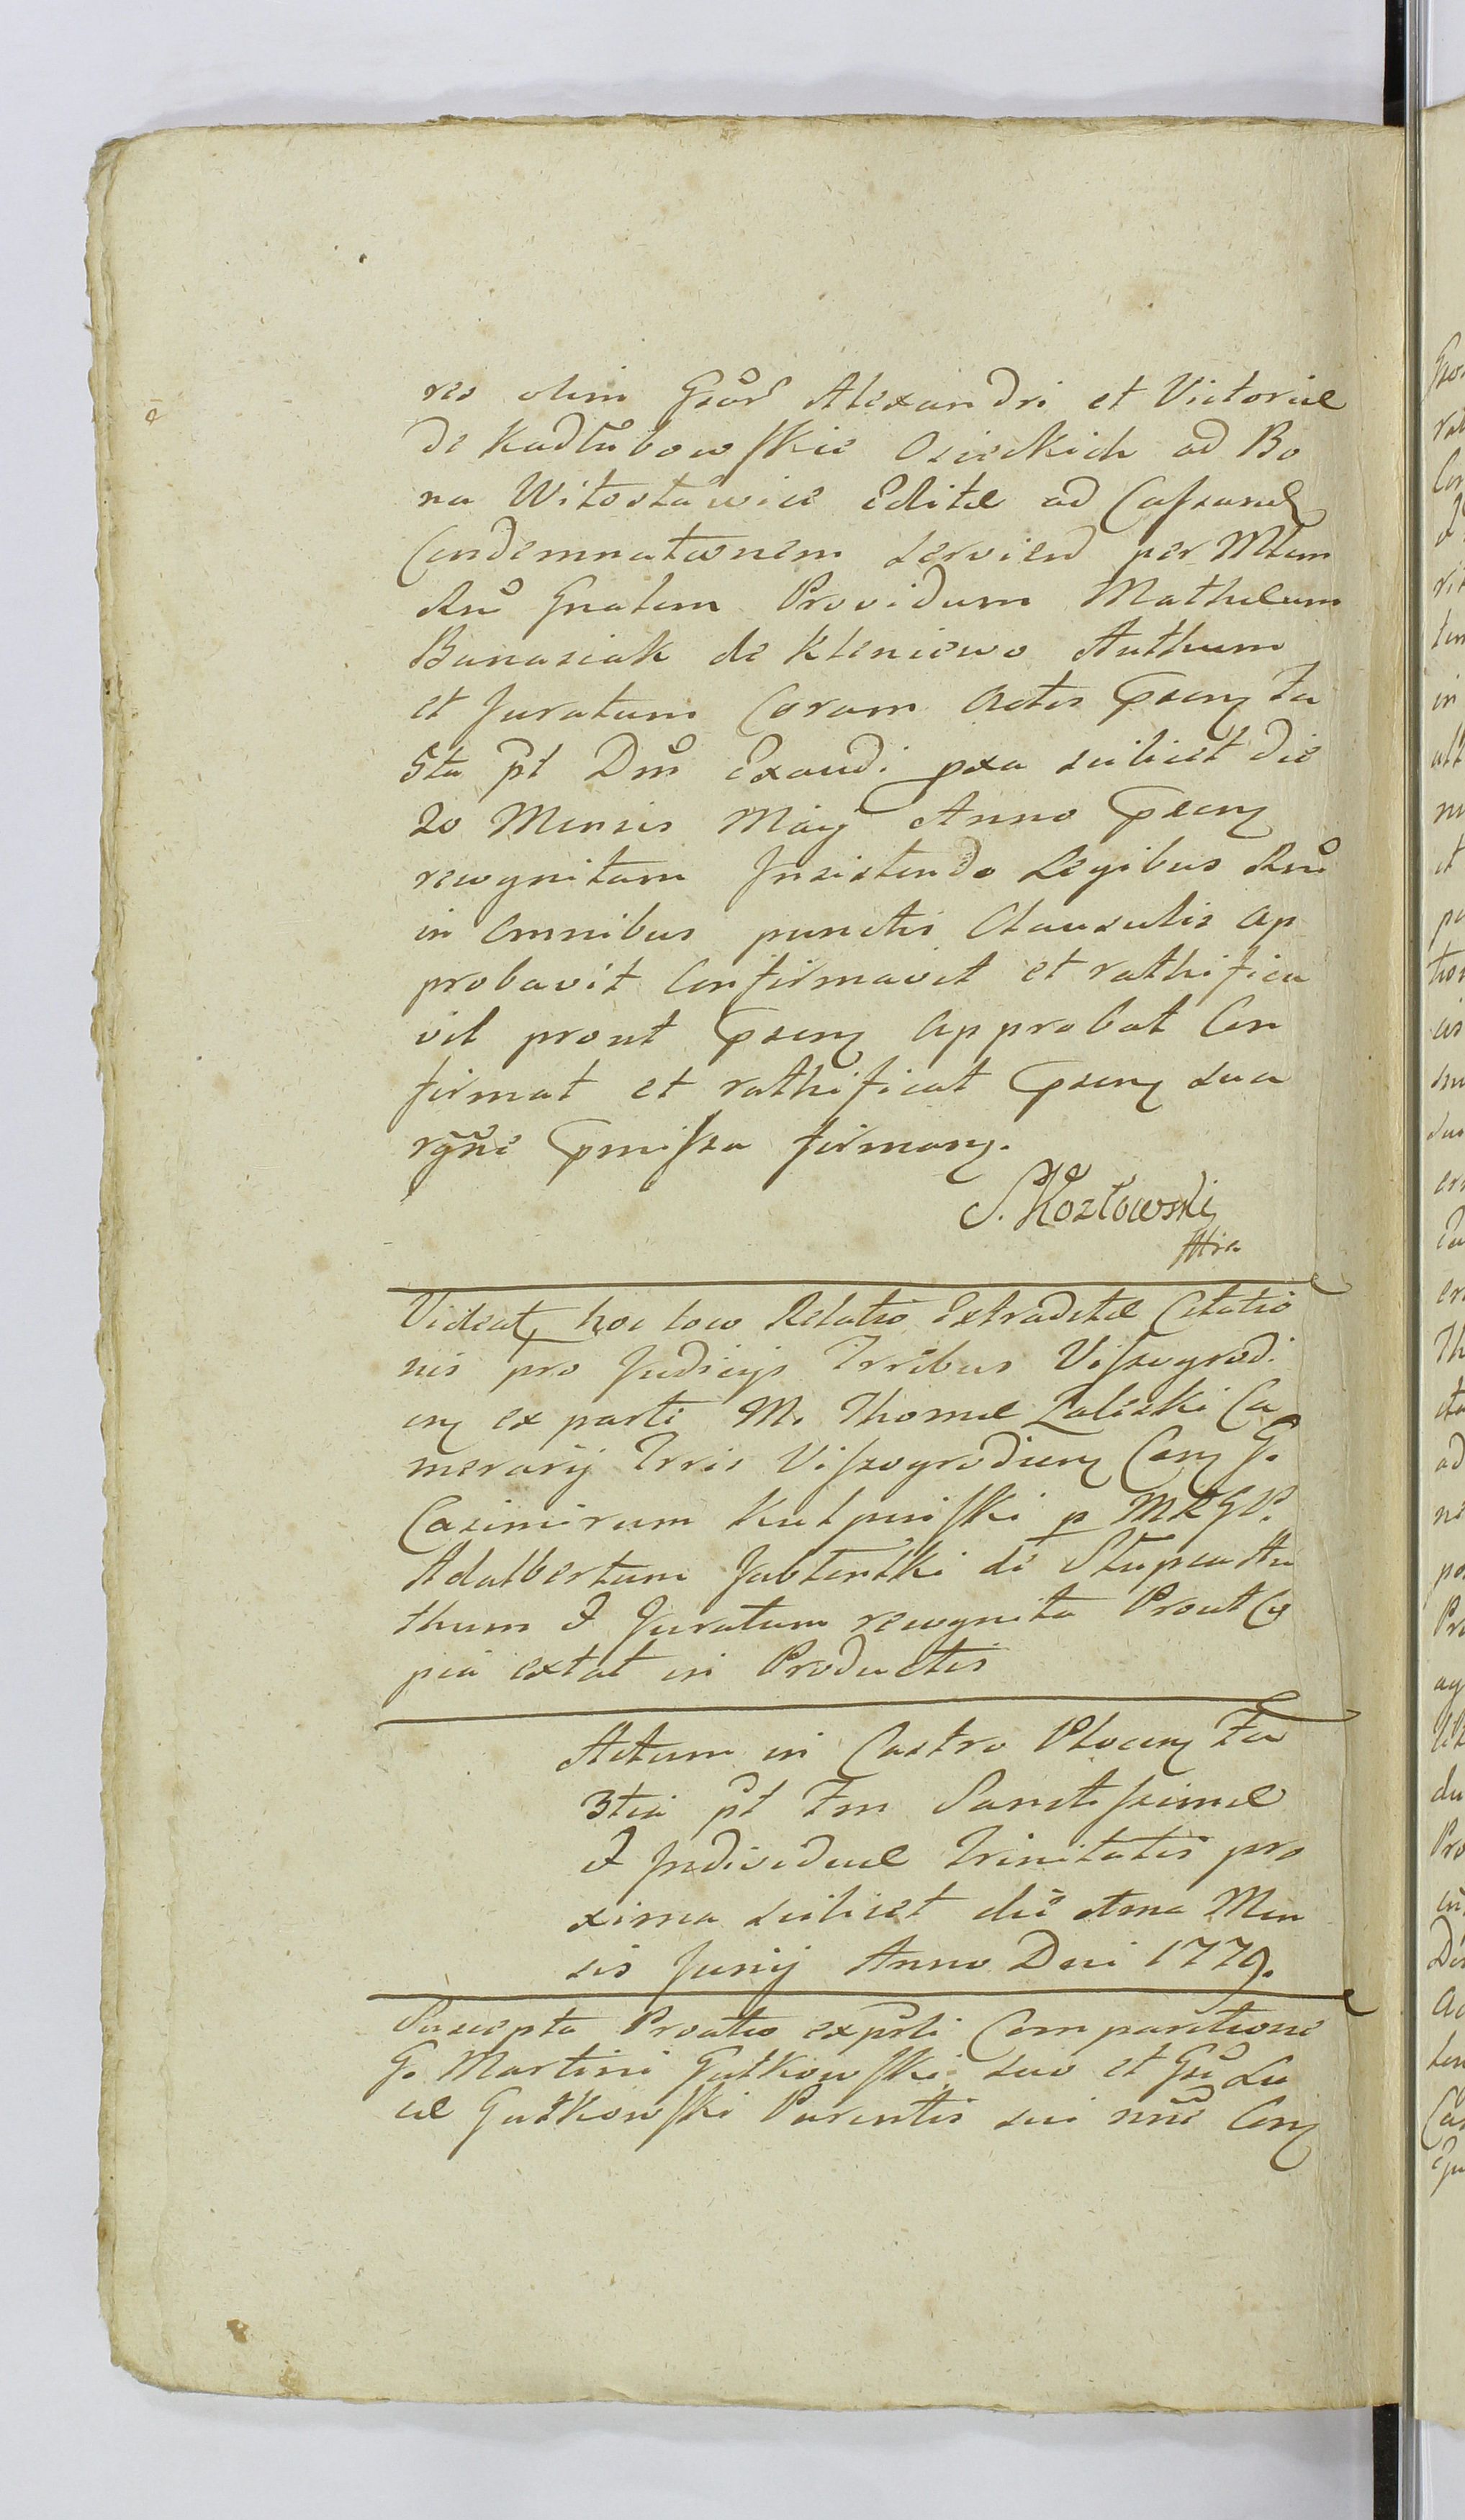 res olim Gsor Alexandri et Victoriæ
de Kadłubowskie Osieckich ad Bo
na Witosławice Editæ ad Cassand
Condemnationem servien per Mtem
Rni Gnalem Providum Mathæum
Banasiak de Kleniewo Authum
et Juratum Coram Actis Præsen Fa
5ta pt Dm Exaudi pxa scilicet die
20 Mensis Maij Anno Præsen
recognitam Insistendo Legibus Rni
in omnibus punctis Clausulis ap
probavit Confirmavit et rathifica
vit prout Præsen approbat Con
firmat et rathificat Præsen sua
rgne Præmissa firman.
S. Kozłowski
Videat hoc loco Relatio Extraditæ Citatio
nis pro Judicijs Trribus Visszogrodi
en ex parte M. Thomæ Zaleski Ca
merarij Trris Viszogrodien Con G.
Casimirum Kulpinski p MRGP.
Adalbertum Jabłonski de Słupca Au
thum & Juratum recognita Prout Co
pia extat in Productis
Actum in Castro Plocen Fa
3tia pt Fm Sanctissimæ
& Individuæ Trinitatis pro
xima scilicet die 1ma Men
sis Junij Anno Dni 1779.
Suscepta Protatio exprti Comparitione
G. Martini Gutkowski suo et Gsi Lu
cæ Gutkowski Parentis sui nne Con